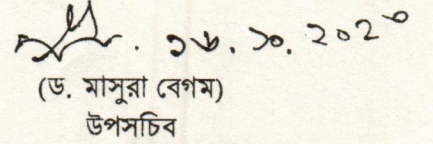 ১০. ২০২০
(ড. মাসুরা বেগম)
উপসচিব